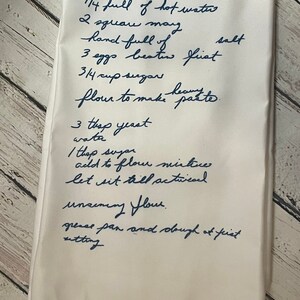 1/4 full of hot water
2 square marg
hand full of salt
3 eggs beaten first
3/4 cup sugar
flour to make heavy paste
3 tbsp yeast
water
1 tbsp sugar
add to flour mixture
let sit till activated
remaining flour
grease pan and dough at first
setting